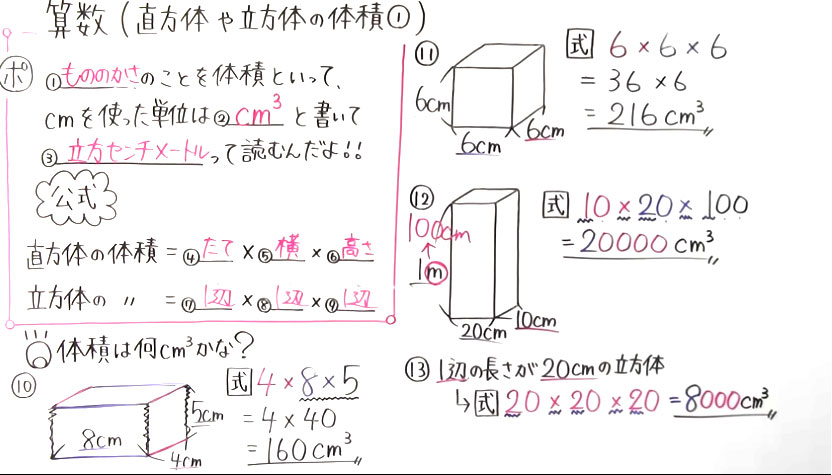 算数(直方体や立方体の体積①)
ポ
①もののかさのことを体積といって、
cmを使った単位は②cm³と書いて
③立方センチメートルって読むんだよ!!
公式
直方体の体積=④たて×⑤横×⑥高さ
立方体の 〃 =⑦1辺×⑧1辺×⑨1辺
体積は何cm³かな?
⑩
8cm
4cm
5cm
式 4×8×5
=4×40
=160cm³
⑪
6cm
6cm
6cm
式 6×6×6
=36×6
=216cm³
⑫
100cm
↑
1m
20cm
10cm
式 10×20×100
=20000cm³
⑬ 1辺の長さが20cmの立方体
↳式 20×20×20=8000cm³